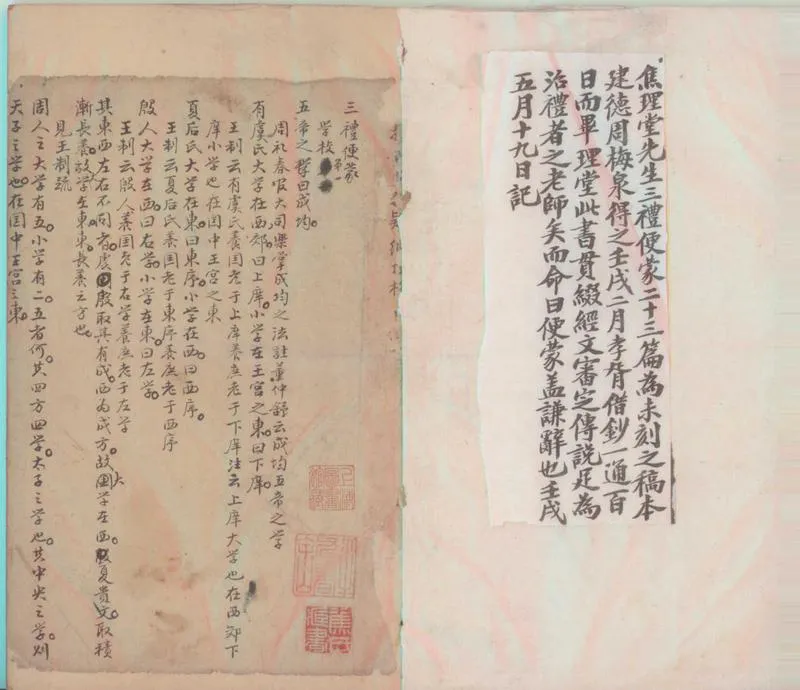 焦理堂先生三禮便蒙二十三篇為未刻之稿本
建德周梅泉得之壬戌二月孝胥借鈔一通百
日而畢理堂此書貫綴經文審定傳說足為
治禮者之老師矣而命曰便蒙蓋謙辭也壬戌
五月十九日記
三禮便蒙
學校第一
五帝之學曰成均。
周礼春官大司樂掌成均之法註董仲舒云成均五帝之学
有虞氏大学在西郊。曰上庠。小学在王宮之東。曰下庠。
王制云有虞氏養国老于上庠養庶老于下庠注云上庠大学也在西郊下
庠小学也在国中王宮之東
夏后氏大学在東。曰東序。小学在西。曰西序。
王制云夏后氏養国老于東序養庶老于西序
殷人大学在西。曰右学。小学在東。曰左学。
王制云殷人養国老于右学養庶老于左学
其東西左右不同者。虞殷取其有成。西為成方。故大学在西。夏貴文。取積
漸長養。故学在東。東。長養之方也。
見王制疏
周人之大学有五。小学有二。五者何。其四方四学。太子之学也。其中央之学。則
天子之学也。在国中王宮之東。
焦氏
藏書